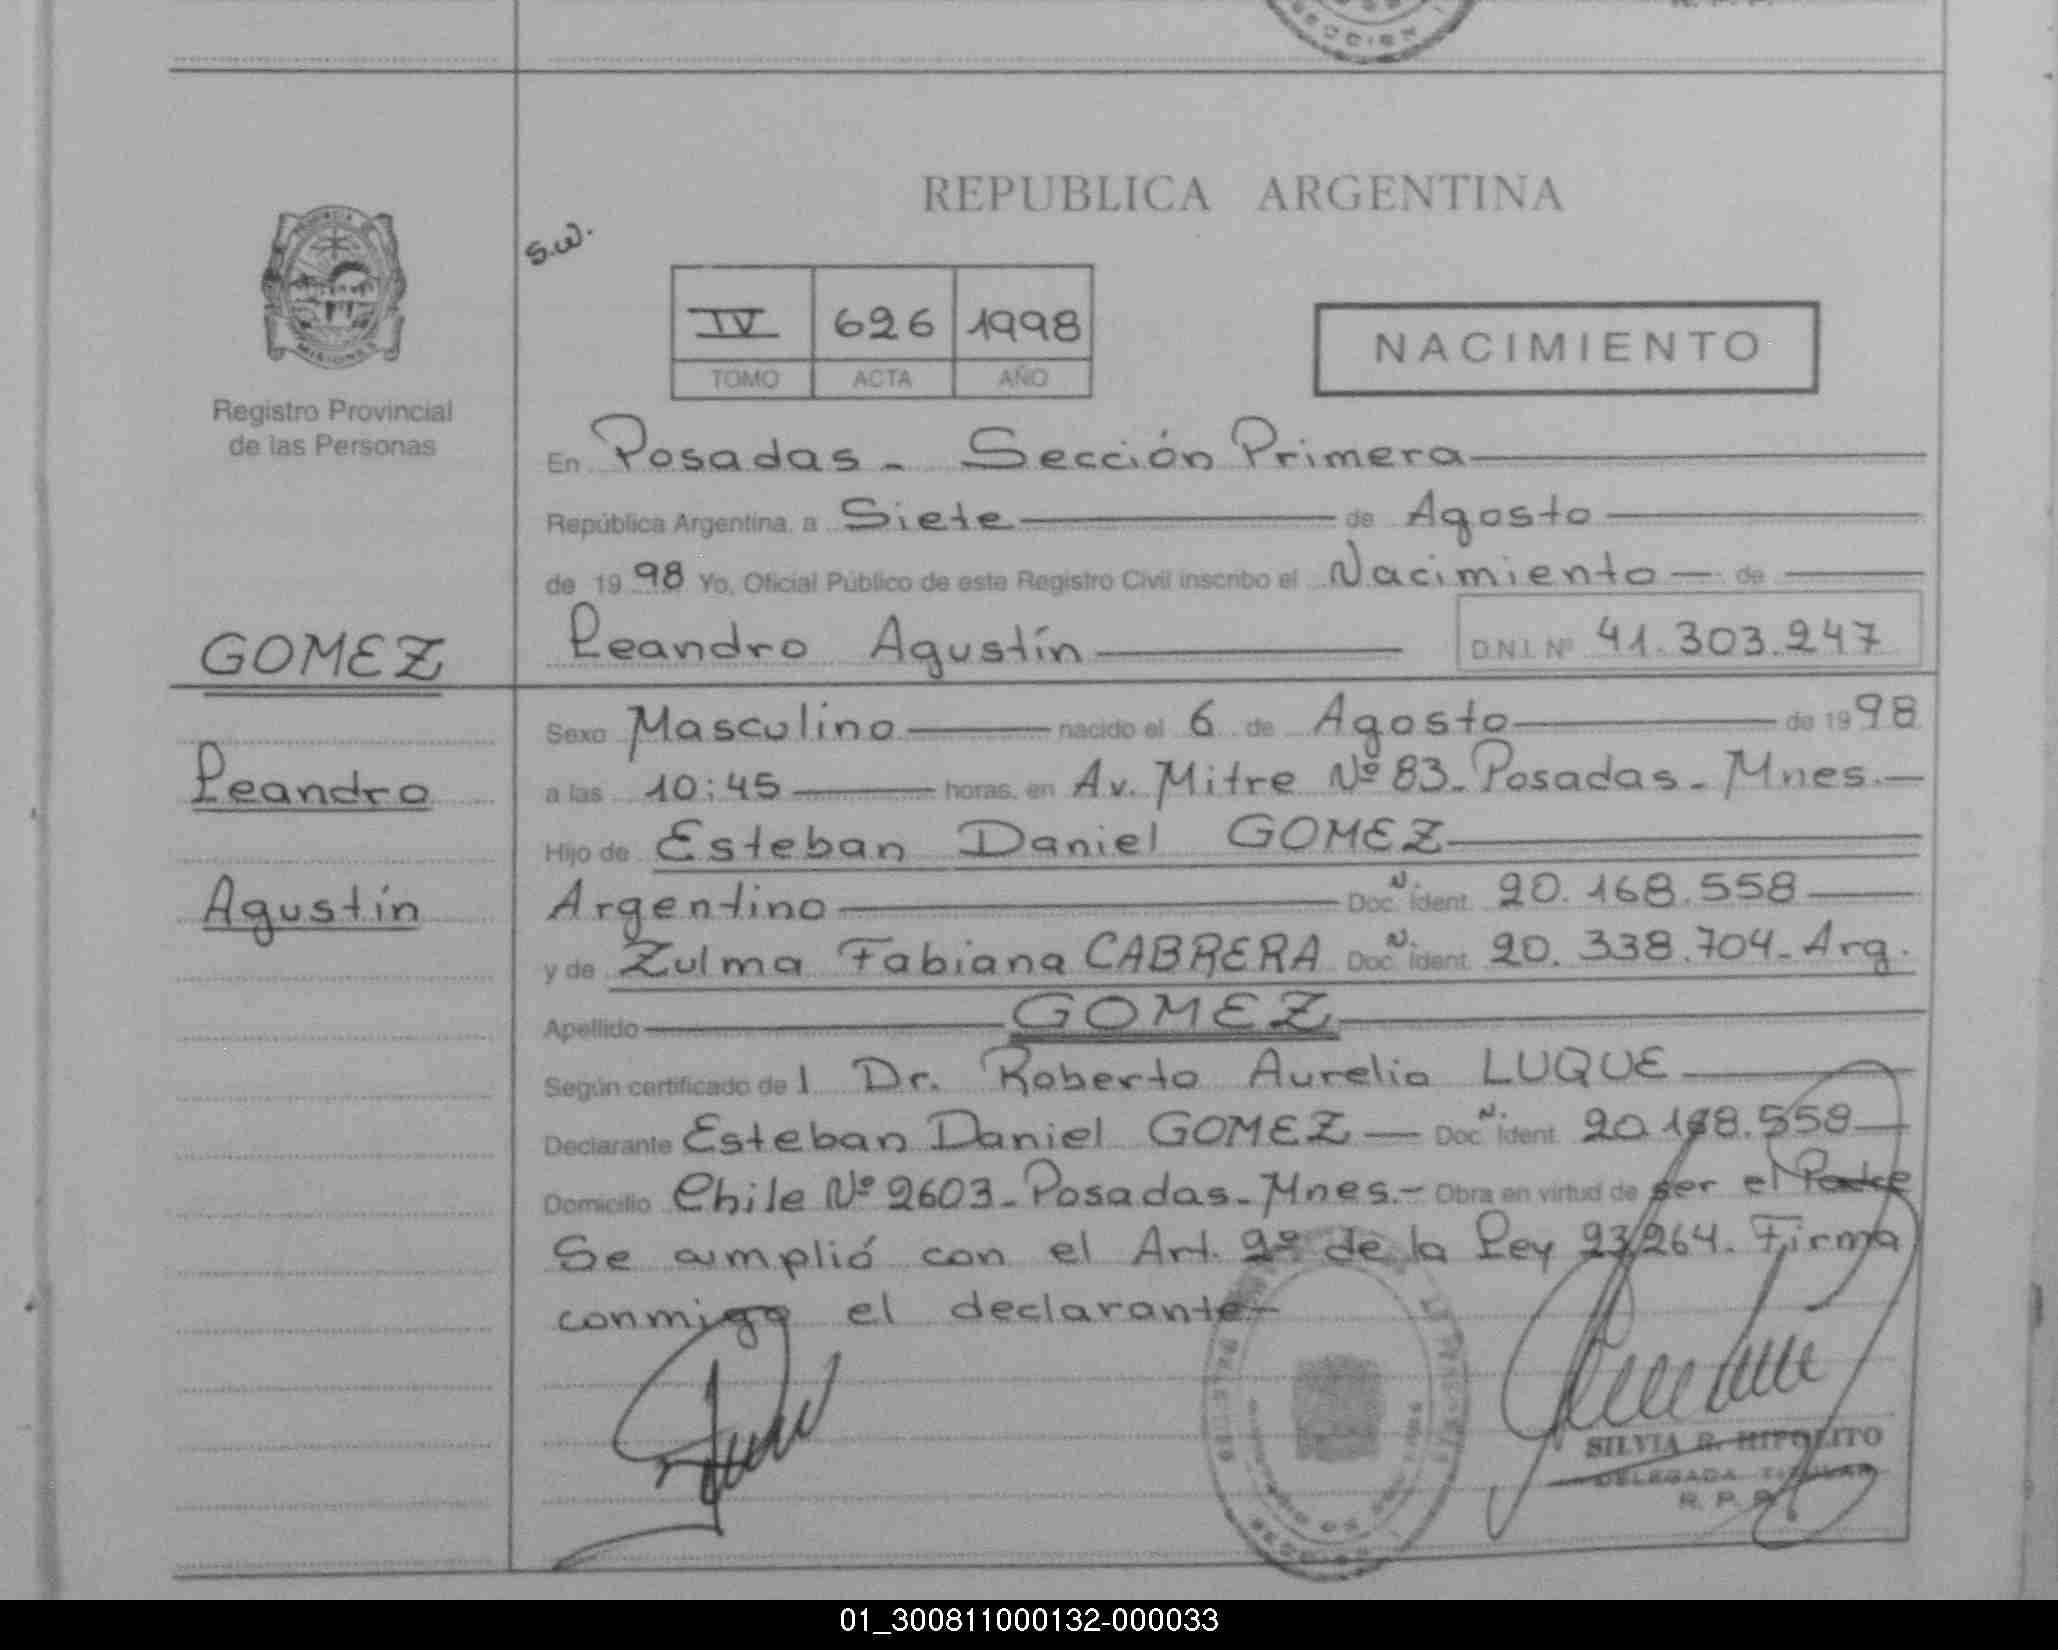 REPUBLICA ARGENTINA
S.W.
IV 626 1998
TOMO ACTA AÑO
NACIMIENTO
MISIONES
Registro Provincial
de las Personas
En Posadas - Sección Primera
República Argentina, a Siete de Agosto
de 1998 Yo, Oficial Público de este Registro Civil inscribo el Nacimiento de
Leandro Agustín D.N.I. Nº 41.303.247
GOMEZ
Leandro
Agustín
Sexo Masculino nacido el 6 de Agosto de 1998
a las 10:45 horas, en Av. Mitre Nº 83 - Posadas - Mnes.
Hijo de Esteban Daniel GOMEZ
Argentino Doc. N. Ident. 20.168.558
y de Zulma Fabiana CABRERA Doc. N. Ident. 20.338.704 - Arg.
Apellido GOMEZ
Según certificado del Dr. Roberto Aurelio LUQUE
Declarante Esteban Daniel GOMEZ Doc. N. Ident. 20.168.558
Domicilio Chile Nº 2603 - Posadas - Mnes. - Obra en virtud de ser el Padre
Se cumplió con el Art. 2º de la Ley 23264. Firma
conmigo el declarante
SILVIA R. HIPOLITO
DELEGADA TITULAR
R. P. P.
01_300811000132-000033